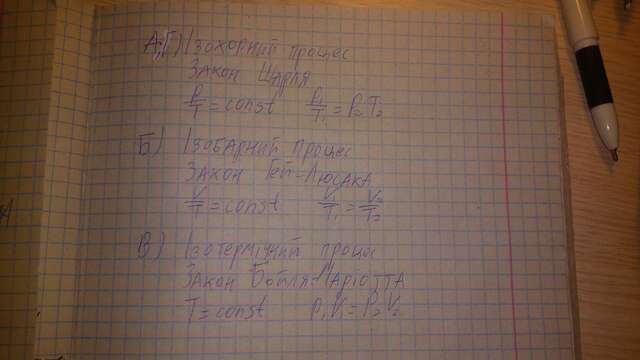 А;Г) Ізохорний процес
Закон Шарля
P/T = const P₁/T₁ = P₂ T₂
Б) Ізобарний процес
Закон Гей-Люсака
V/T = const V₁/T₁ = V₂/T₂
В) Ізотермічний процес
Закон Бойля-Маріотта
T = const P₁V₁ = P₂V₂